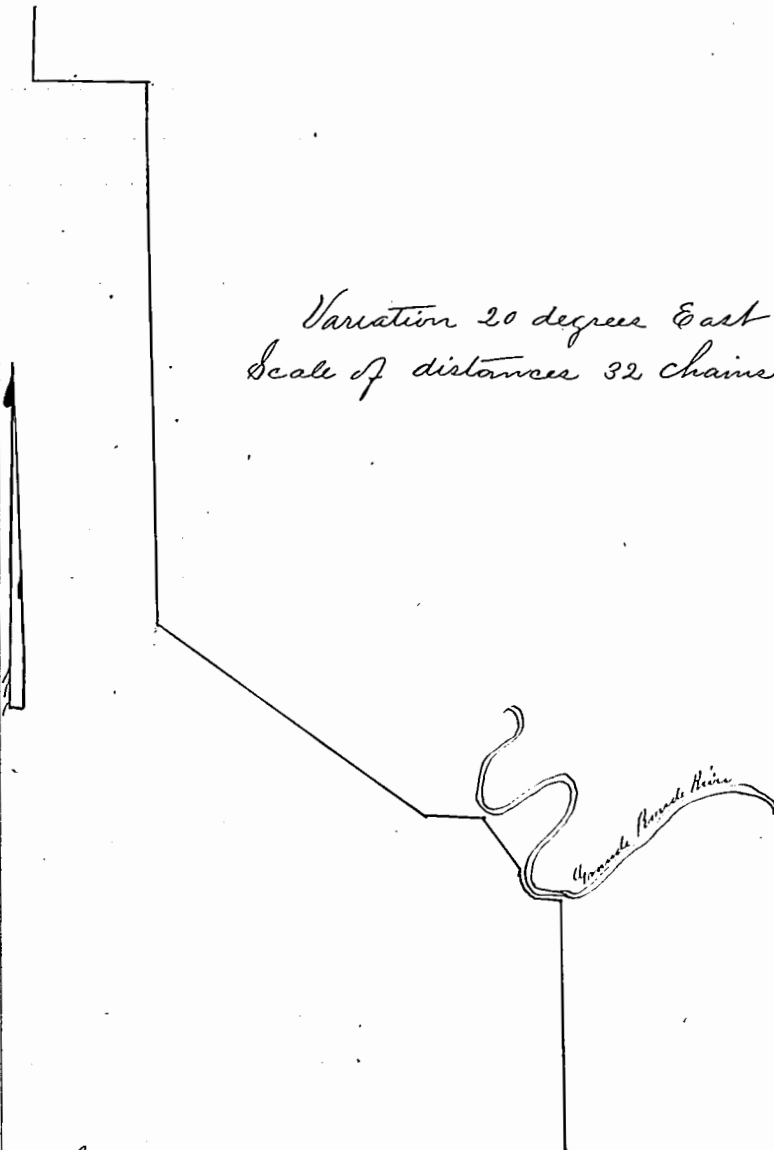 Variation 20 degrees East
Scale of distances 32 chains
Grande Ronde River